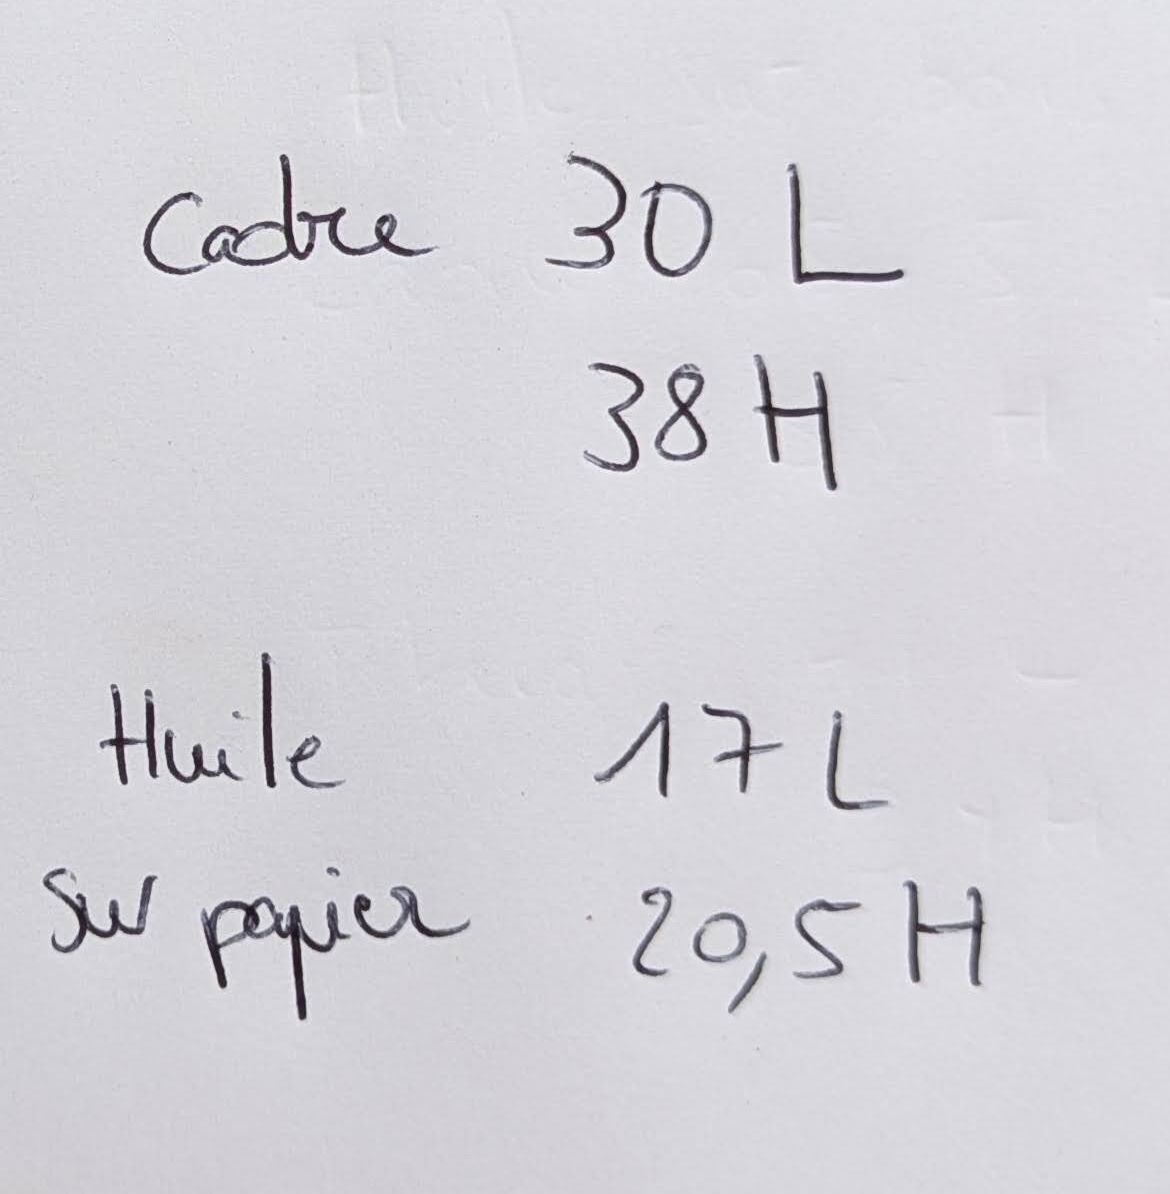 Cadre 30 L
38 H
Huile 17 L
Sur papier 20,5 H